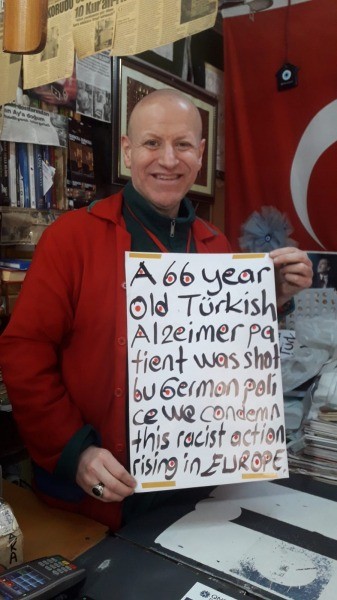 KORUDU
10 Kur'an-ı
A 66 year
Old Türkish
Alzeimer pa
tient was shot
bu German poli
ce we condemn
this racist action
rising in EUROPE.